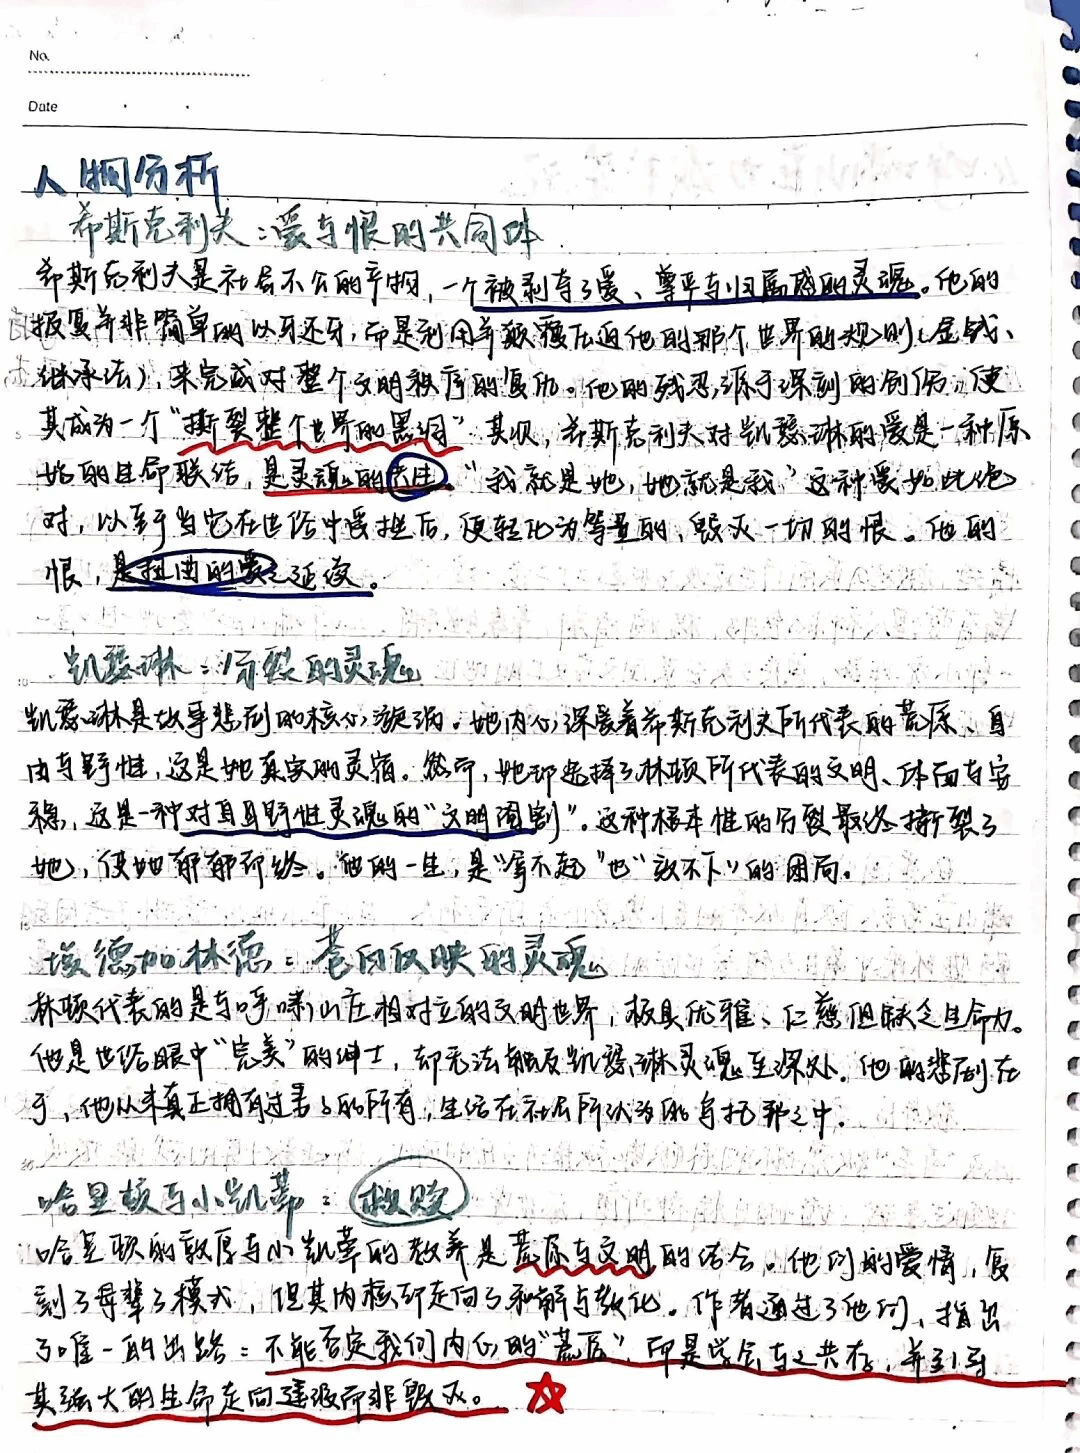 No.
Date
人物分析
希斯克利夫：爱与恨的共同体
希斯克利夫是社会不公的产物，一个被剥夺了爱、尊严与归属感的灵魂。他的
报复并非简单的以牙还牙，而是利用并颠覆压迫他的那个世界的规则（金钱、
继承法），来完成对整个文明秩序的复仇。他的残忍源于深刻的创伤，使
其成为一个“撕裂整个世界的黑洞”其次，希斯克利夫对凯瑟琳的爱是一种原
始的生命联结，是灵魂的共生。“我就是她，她就是我”这种爱如此绝
对，以至于当它在世俗中受挫后，便转化为等量的，毁灭一切的恨。他的
恨，是扭曲的爱之延续。
凯瑟琳：分裂的灵魂
凯瑟琳是故事悲剧的核心漩涡。她内心深爱着希斯克利夫所代表的荒原、自
由与野性，这是她真实的灵宿。然而，她却选择了林顿所代表的文明、体面与安
稳，这是一种对自身野性灵魂的“文明阉割”。这种根本性的分裂最终撕裂了
她，使她郁郁而终。他的一生，是“拿不起”也“放不下”的困局。
埃德加林德：苍白反映的灵魂
林顿代表的是与呼啸山庄相对立的文明世界，极具优雅、仁慈但缺乏生命力。
他是世俗眼中“完美”的绅士，却无法触及凯瑟琳灵魂至深处。他的悲剧在
于，他从未真正拥有过妻子的所有，生活在社会所认为的乌托邦之中。
哈里顿与小凯蒂：救赎
哈里顿的敦厚与小凯蒂的教养是荒原与文明的结合。他们的爱情，复
刻了母辈了模式，但其内核却走向了和解与教化。作者通过了他们，指出
了唯一的出路：不能否定我们内心的“荒原”，而是学会与之共存，并引导
其强大的生命走向建设而非毁灭。